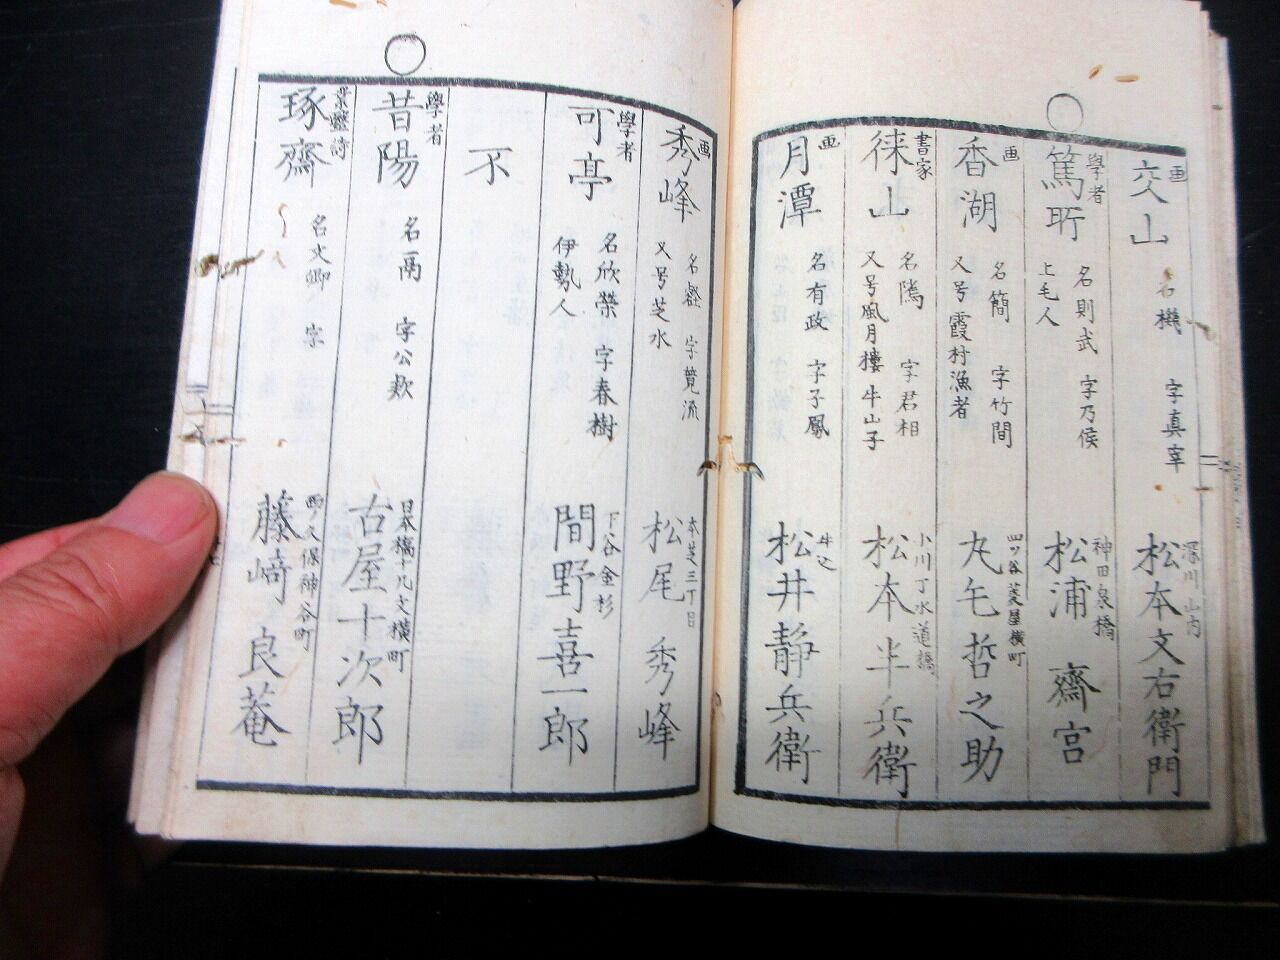 画
交山
名機 字真宰
深川山内
松本文右衛門
學者
篤所
名則武 字乃侯
上毛人
神田泉橋
松浦 齋宮
画
香湖
名簡 字竹間
又号霞村漁者
四ツ谷菱屋横町
丸毛哲之助
書家
徠山
名隲 字君相
又号風月樓 牛山子
小川丁水道橋
松本半兵衛
画
月潭
名有政 字子鳳
牛込
松井静兵衛
画
秀峰
字寛流
又号芝水
本芝三丁目
松尾 秀峰
學者
可亭
名欣榮 字春樹
伊勢人
下谷金杉
間野喜一郎
學者
昔陽
名鬲 字公款
日本橋十九文横町
古屋十次郎
詩
琢齋
名文卿 字
西ノ久保神谷町
藤﨑 良菴